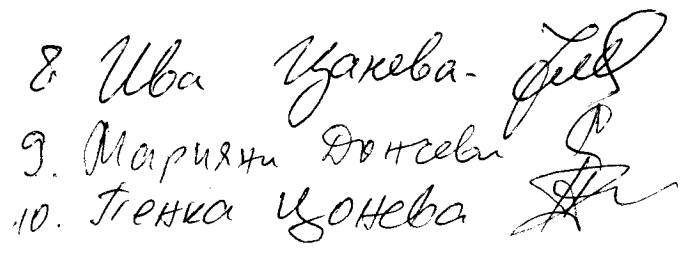 8. Ива Цанева -
9. Марияна Дончева
10. Пенка Цонева